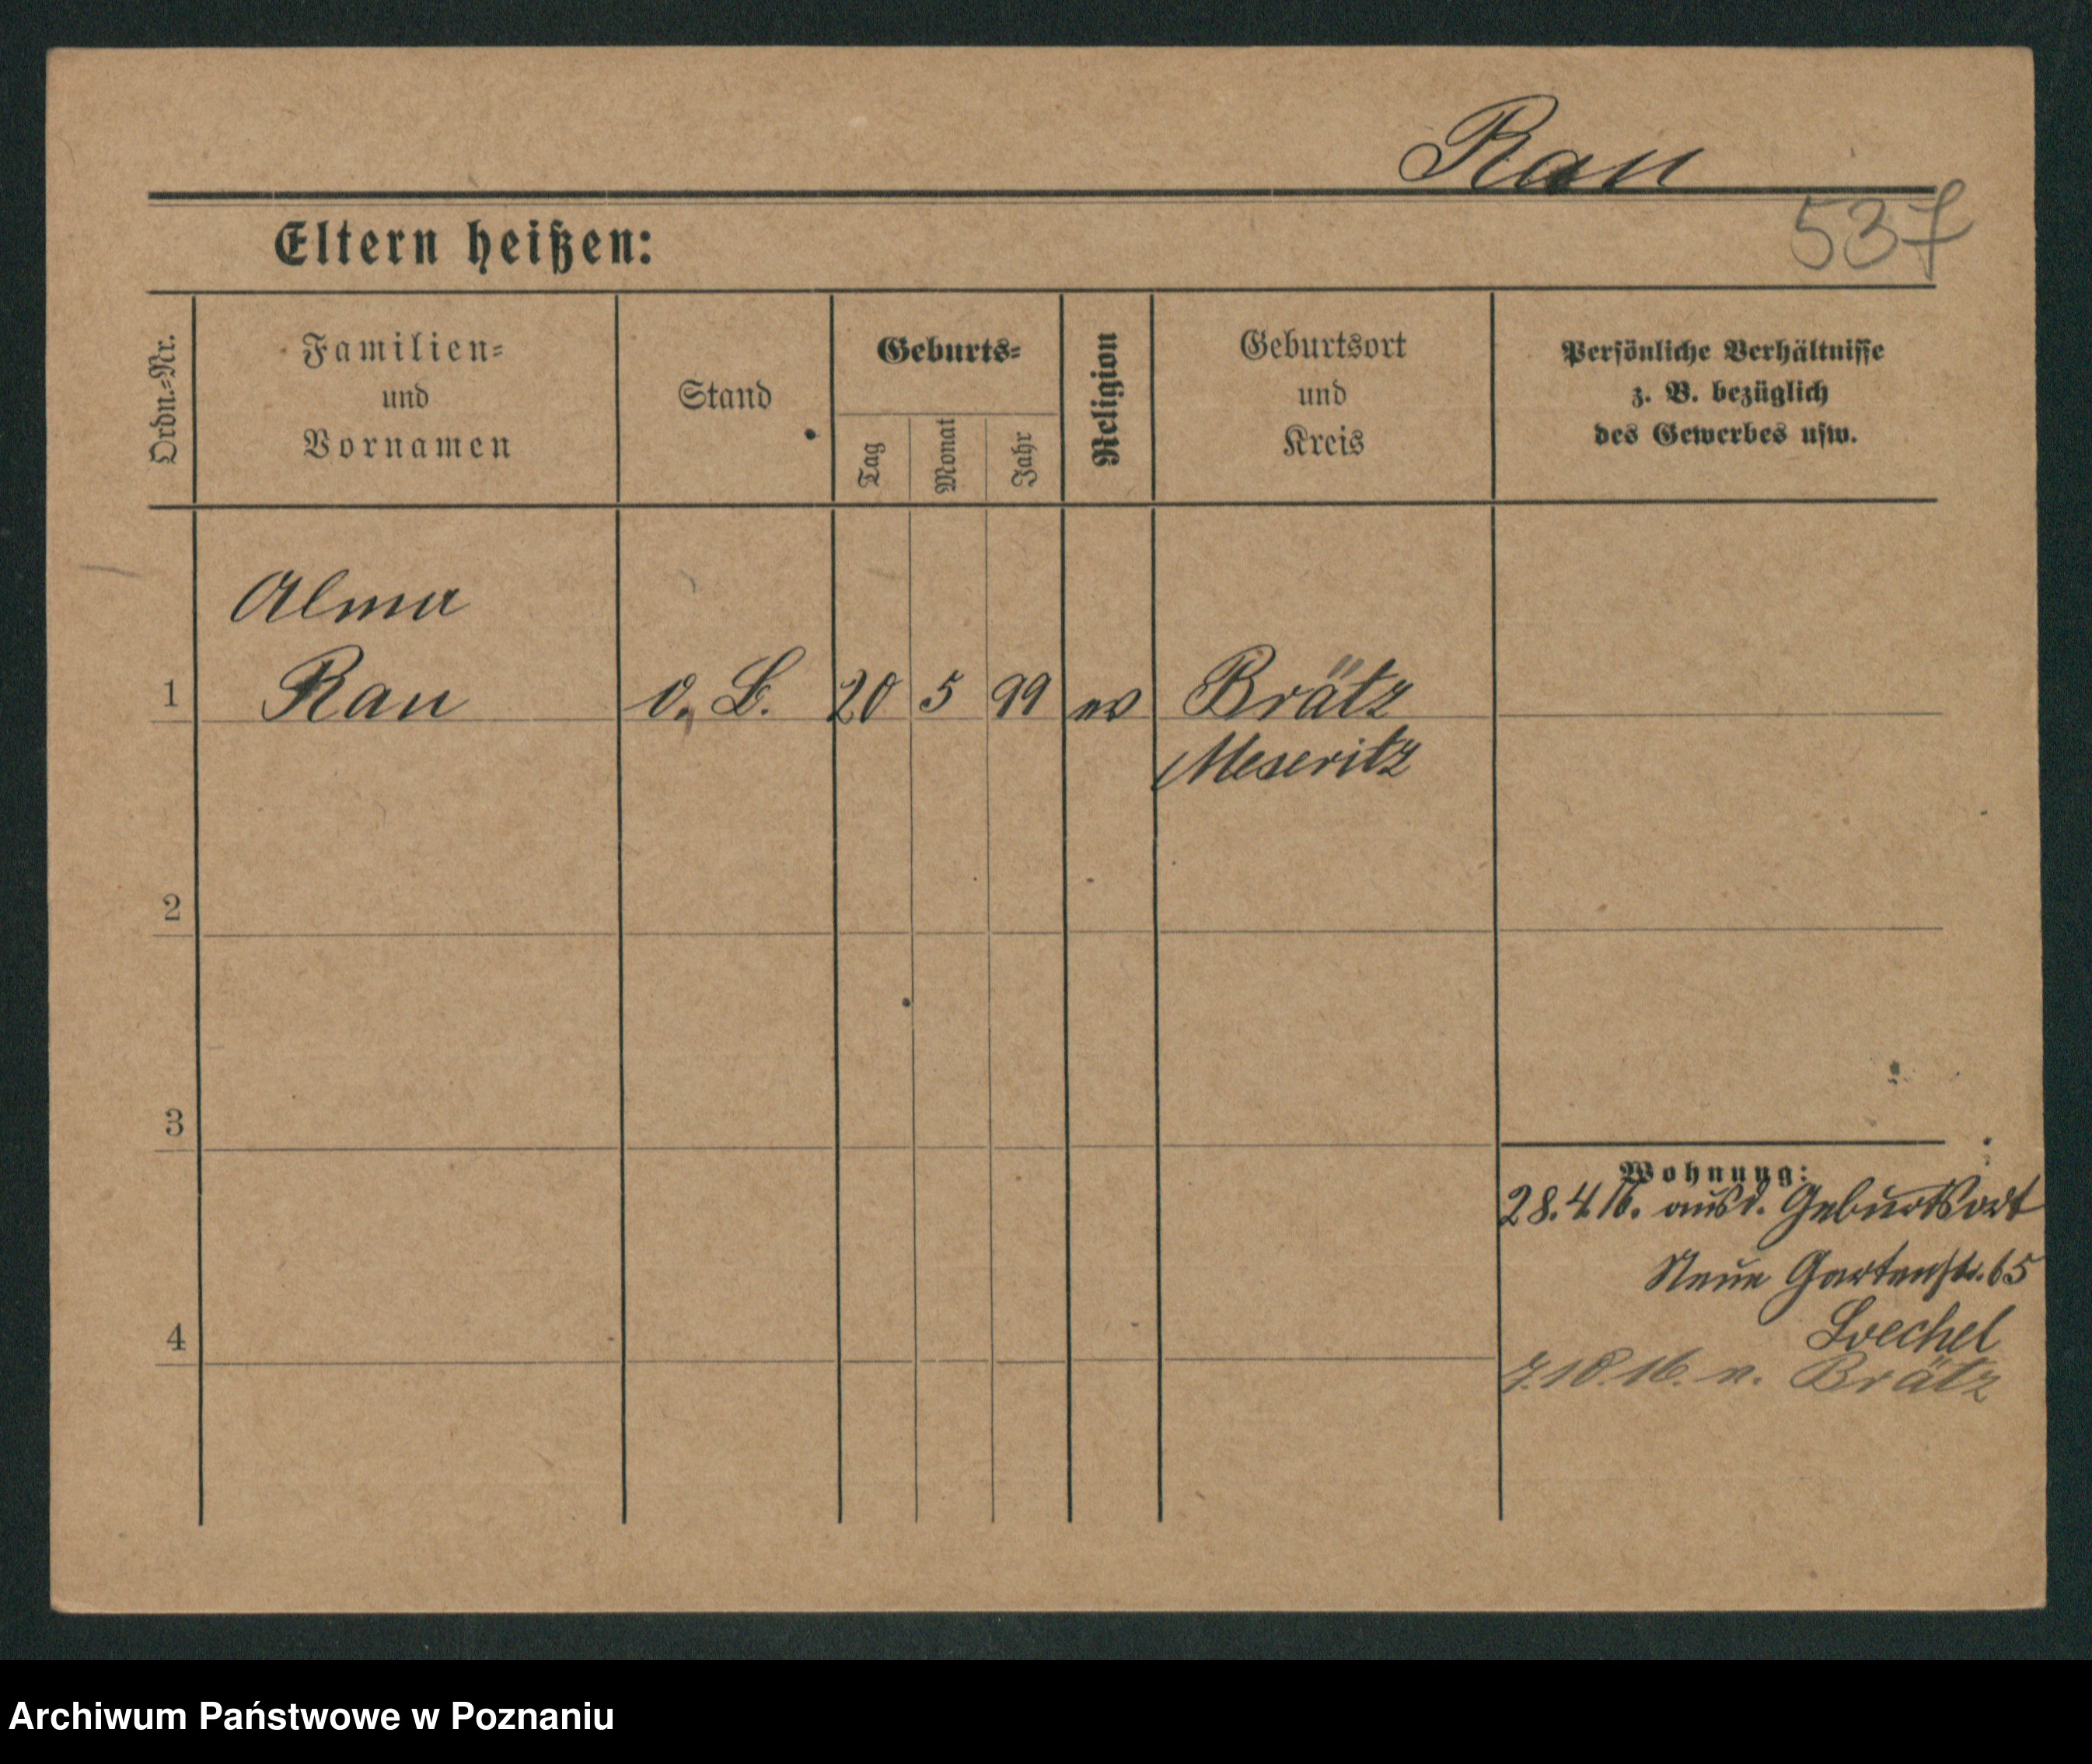 Rau
537
Eltern heißen:
Ordn.=Nr.
Familien=
und
Vornamen
Stand
Geburts=
Tag
Monat
Jahr
Religion
Geburtsort
und
Kreis
Persönliche Verhältnisse
z. B. bezüglich
des Gewerbes usw.
Alma
1 Rau o. B. 20 5 99 ev Brätz
Meseritz
2
3
4
Wohnung:
28.4.16. aus d. Geburtsort
Neue Gartenstr. 65
Loechel
7.10.16. n. Brätz
Archiwum Państwowe w Poznaniu